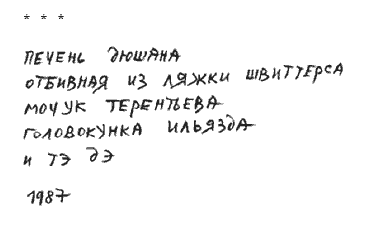 * * *
ПЕЧЕНЬ ДЮШАНА
ОТБИВНАЯ ИЗ ЛЯЖКИ ШВИТТЕРСА
МОЧУК ТЕРЕНТЬЕВА
ГОЛОВОКУНКА ИЛЬЯЗДА
И ТЭ ДЭ
1987